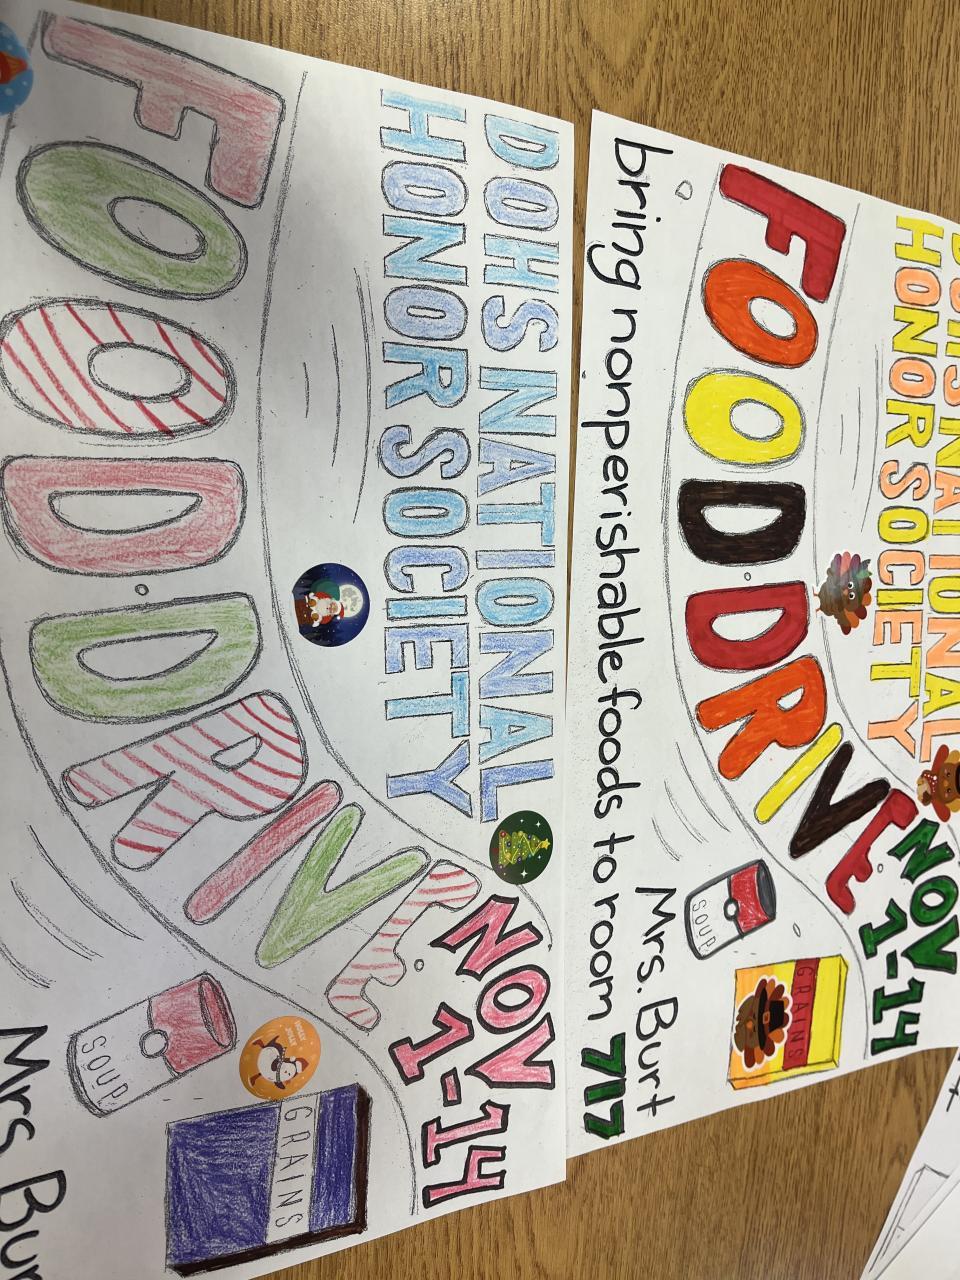 DOHS NATIONAL
HONOR SOCIETY
FOOD DRIVE
NOV
1-14
SOUP
GRAINS
Mrs. Bur
DOHS NATIONAL
HONOR SOCIETY
FOOD DRIVE
NOV
1-14
SOUP
GRAINS
Mrs. Burt
bring nonperishable foods to room 717